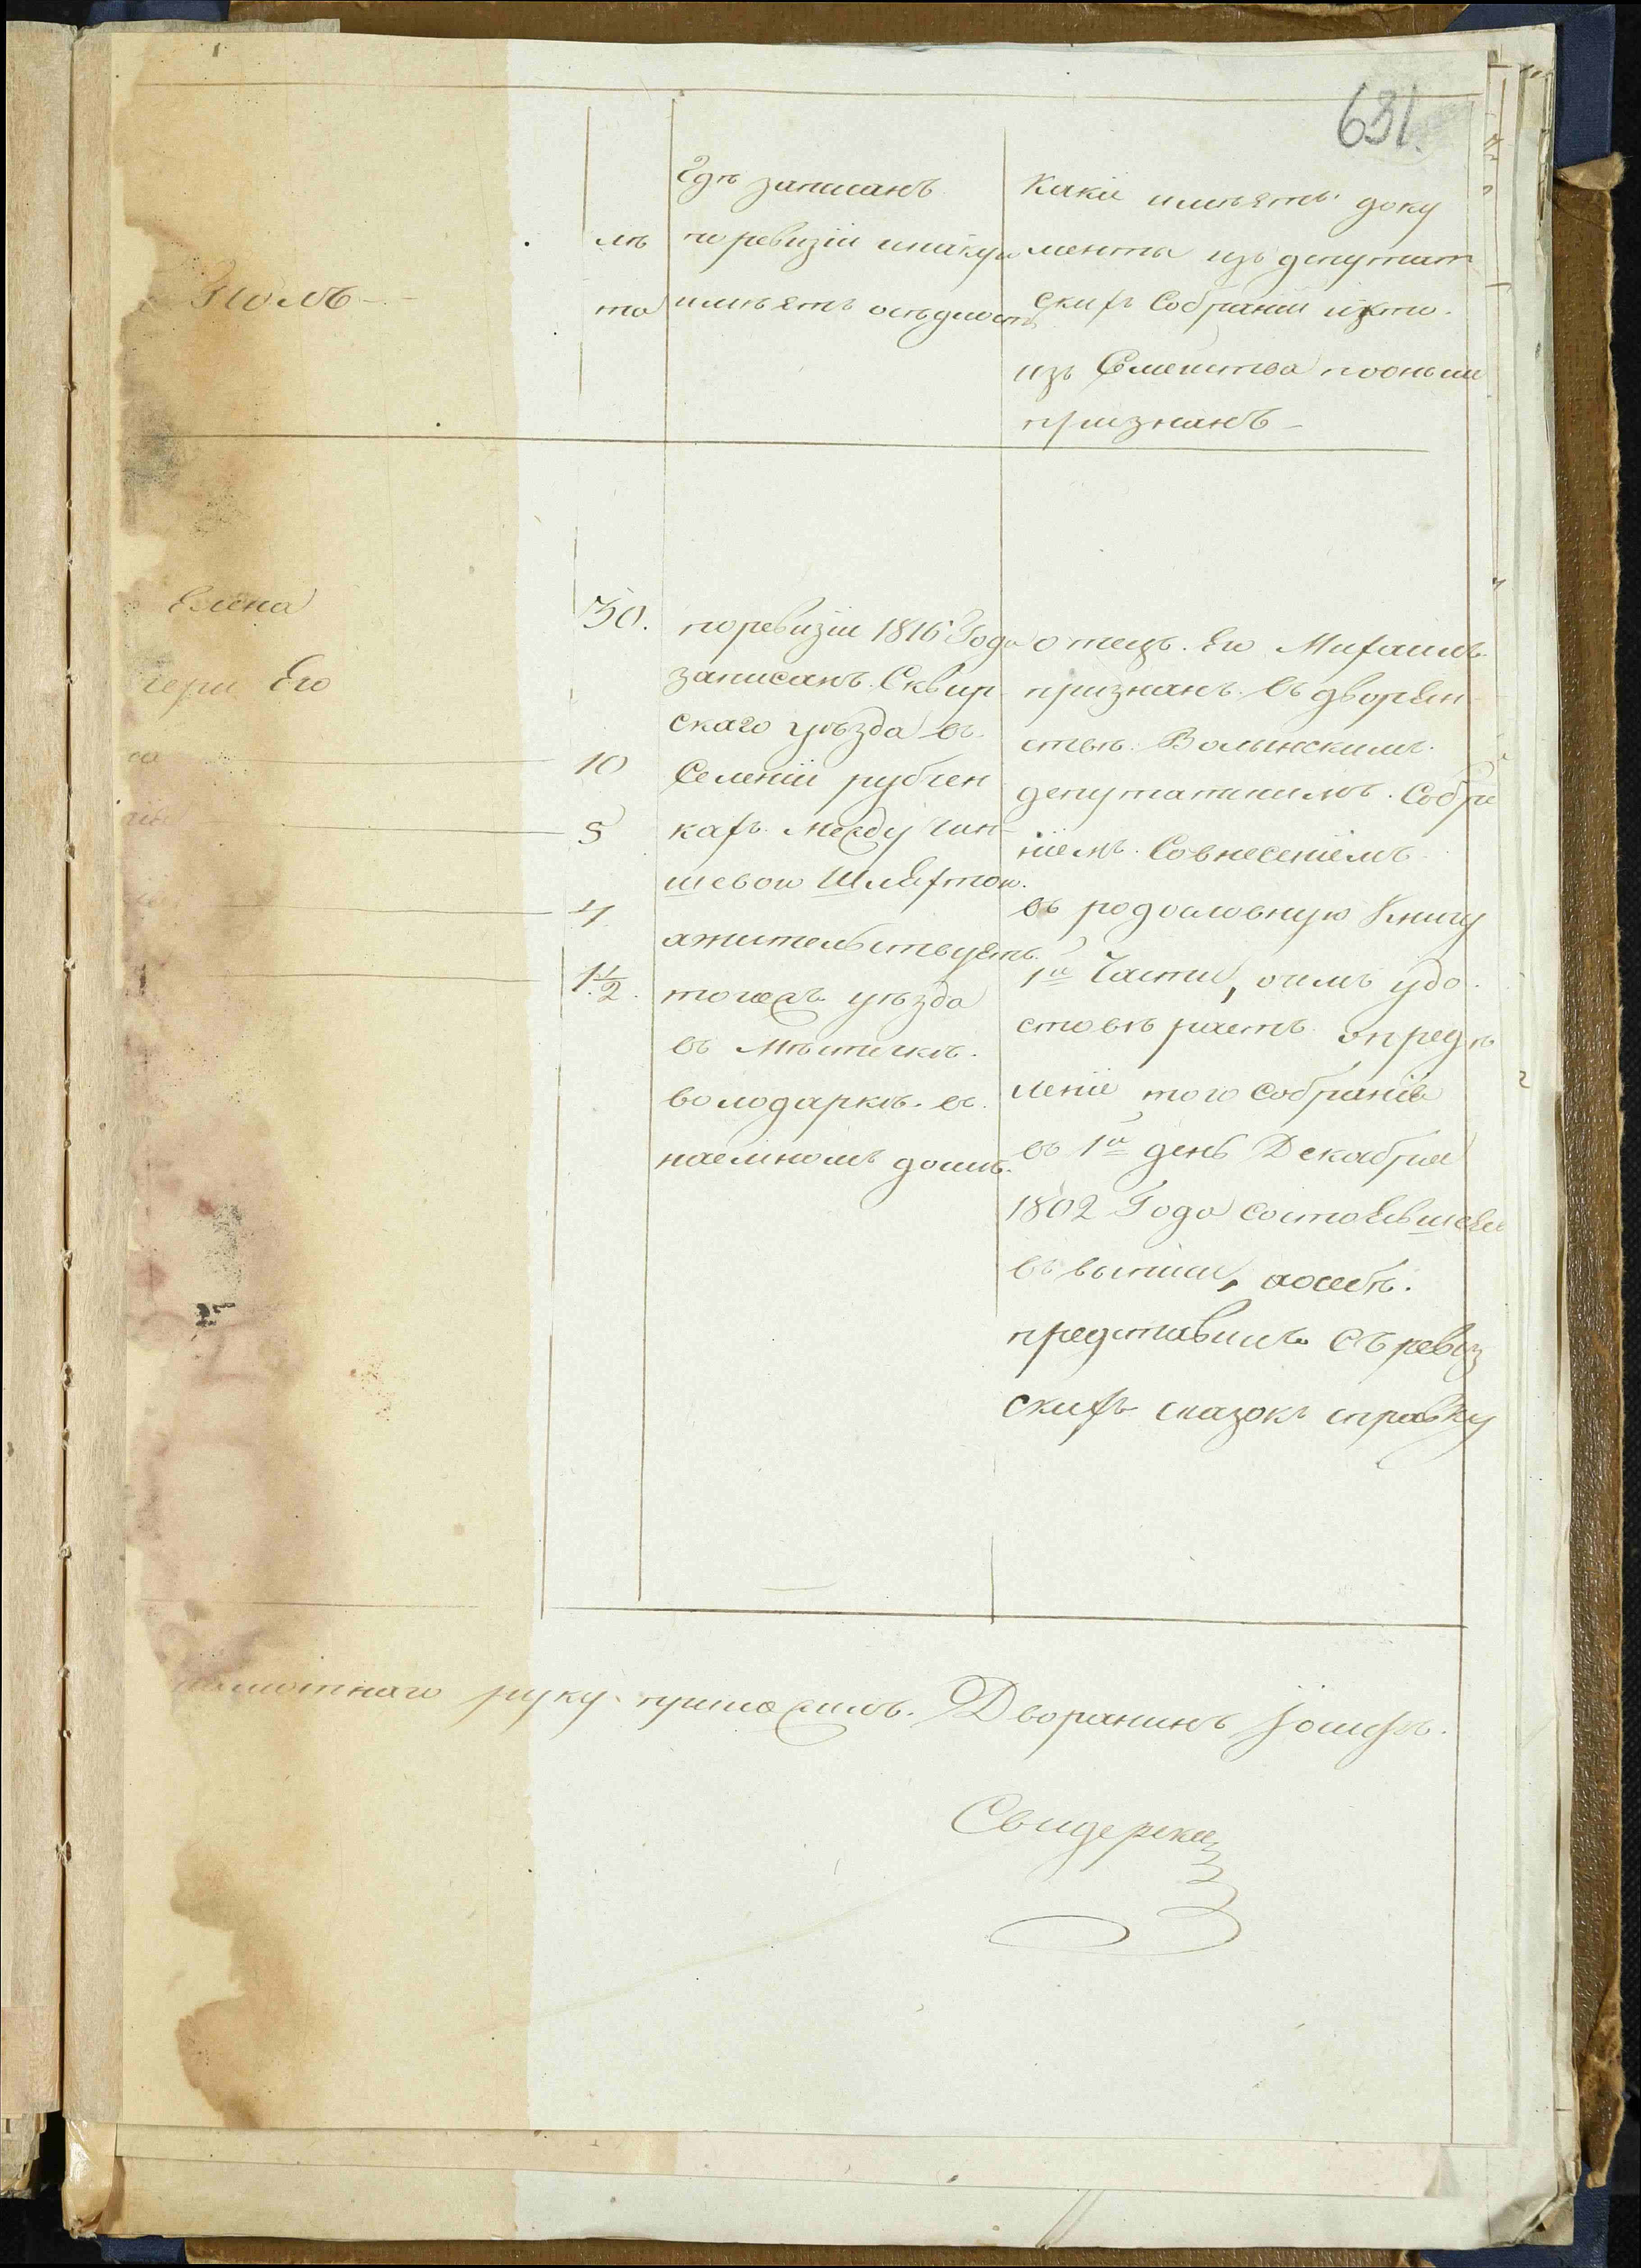 631.
Полъ
лѣ
та
Гдѣ записанъ
по ревизіи и какую
имѣетъ осѣдлость
Какіе имѣетъ доку
менты изъ депутат
скихъ Собраній и кто
изъ Семейства по онымъ
признанъ
Елена
чери Его
30.
10
5
4
1 1/2.
по ревизіи 1816 Года
записанъ Сквир
скаго уѣзда въ
Селеніи рубчен
кахъ между чин
шевою Шляхтою.
а жительствуетъ
тогожъ уѣзда
въ Мѣстичкѣ
володаркѣ въ
наемномъ домѣ.
отецъ Его Михаилъ
признанъ въ дворян
ствѣ Волынскимъ
депутатскимъ Собра
ніемъ Совнесеніемъ
въ родословную Книгу
1й Части, о чемъ удо
стовѣряетъ опредѣ
леніе того Собранія
въ 1й день Декабря
1802 Года состоявшееся
представилъ съ ревиз
скихъ сказокъ справку
руку приложилъ. Дворянинъ Іосифъ
Свидерски